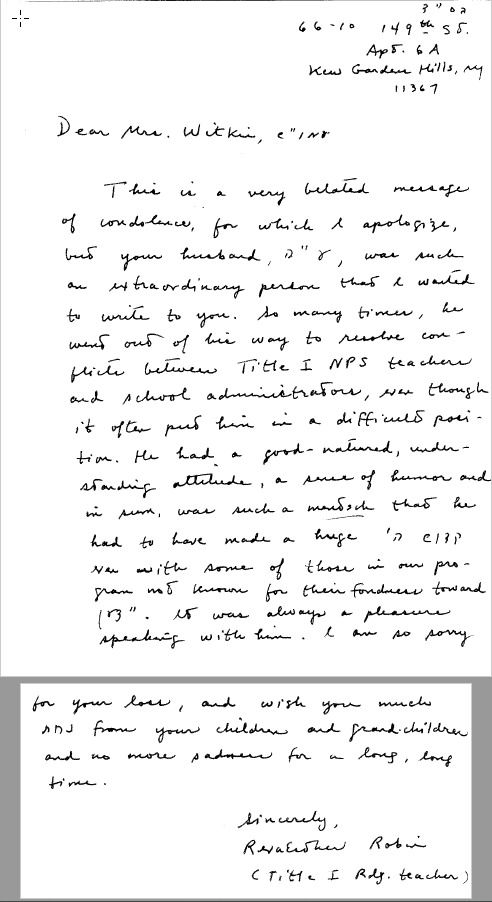 66-10 149th St.
Apt. 6A
Kew Gardens Hills, NY
11367
Dear Mrs. Witkin,
This is a very belated message
of condolence, for which I apologize,
but your husband, ע"ה, was such
an extraordinary person that I wanted
to write to you. So many times, he
went out of his way to resolve con-
flicts between Title I NPS teachers
and school administrators, even though
it often put him in a difficult posi-
tion. He had a good-natured, under-
standing attitude, a sense of humor and
in sum, was such a mentsch that he
had to have made a huge קידוש ה'
even with some of those in our pro-
gram not known for their fondness toward
It was always a pleasure
speaking with him. I am so sorry
for your loss, and wish you much
נחת from your children and grandchildren
and no more sadness for a long, long
time.
Sincerely,
RevaEsther Robin
(Title I Rdg. teacher)